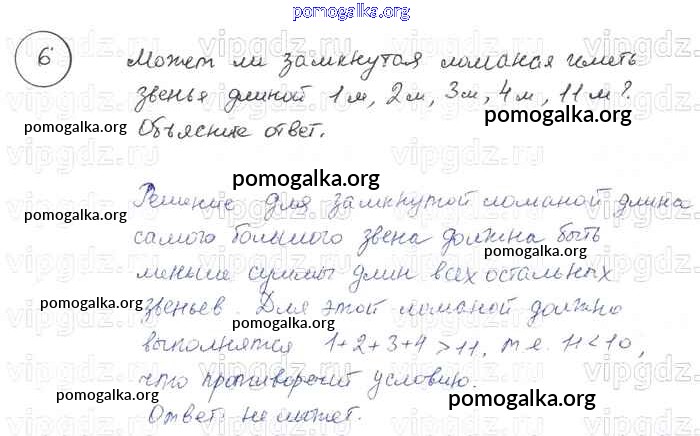 pomogalka.org
6
Может ли замкнутая ломаная иметь
звенья длиной 1м, 2м, 3м, 4м, 11м?
pomogalka.org
Объясните ответ.
pomogalka.org
pomogalka.org
Решение Для замкнутой ломаной длина
pomogalka.org
самого большого звена должна быть
pomogalka.org
меньше суммы длин всех остальных
pomogalka.org
звеньев. Для этой ломаной должно
pomogalka.org
выполнятся 1+2+3+4>11, т.е. 11<10,
pomogalka.org
что противоречит условию.
pomogalka.org
Ответ: не может.
pomogalka.org
vipgdz.ru